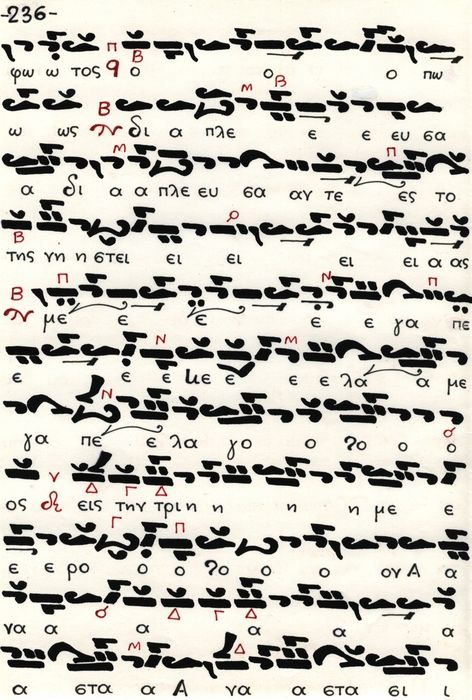 -236-
Π Β
φω ω τος ο ο ο πω
Μ Β
ω ως Β δι α πλε ε ε ευ σα
Μ Π
α δι α α πλε ευ σα αγ τε ες το
Β
της γη η στει ει ει ει ει α ας
Π Ν Π
Β με ε ε ε ε γα πε
Ν Μ
ε ε ε με ε ε ε λα α με
Ν
γα πε ε λα γο ο ?ο ο ο
ος εις την τρι η η η η με ε
Δ Γ Δ
Γ Π
ε ε ρο ο ο ?ο ο ο ον Α α
να α α α α α
Δ Γ Δ
Μ Δ
α στα α Α να α στα σι ι